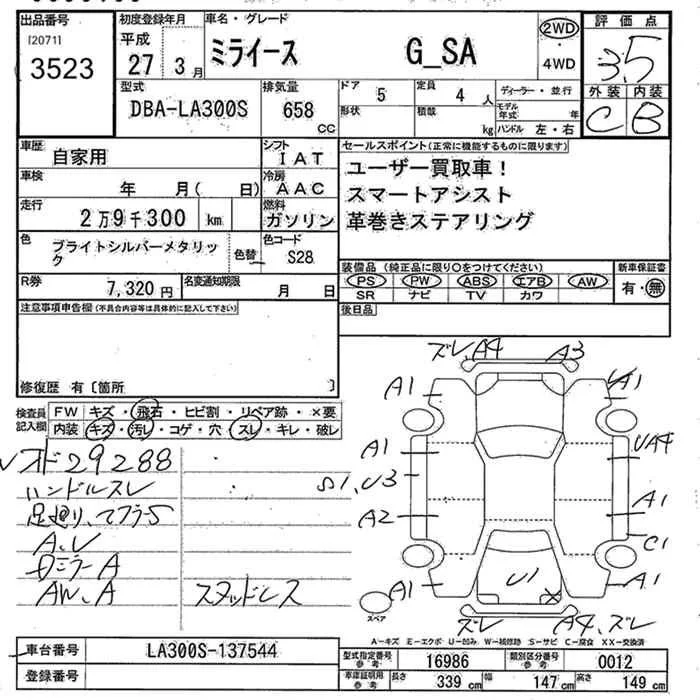 出品番号
[2071]
3523
初度登録年月
平成
27 3月
車名・グレード
ミライース G_SA
2WD
4WD
評価点
3.5
外装 内装
C B
型式
DBA-LA300S
排気量
658 CC
ドア 5
形状
定員 4 人
積載 kg
ディーラー・並行
モデル年式 年
ハンドル 左・右
車歴
自家用
シフト
IAT
車検
年 月( 日)
冷房
AAC
走行
2万9千300 km
燃料
ガソリン
色
ブライトシルバーメタリック
色替
色コード
S28
R券
7,320 円
名変通知期限
月 日
セールスポイント(正常に機能するものに限ります)
ユーザー買取車!
スマートアシスト
革巻きステアリング
装備品 (純正品に限り○をつけてください)
PS PW ABS エアB AW
SR ナビ TV カワ
新車保証書
有・無
後日品
注意事項申告欄(不具合内容等は具体的に記入して下さい)
修復歴 有〔箇所 〕
検査員記入欄
FW キズ・飛石・ヒビ割・リペア跡・×要
内装 キズ・汚レ・コゲ・穴・スレ・キレ・破レ
29288
ハンドルスレ
足廻り、マフラーS
A、U
Dミラー A
AW、A
スタッドレス
ズレ、A4 A3
A1 UA1
A1 UA4
S1、U3
A2 A1
C1
A1 U1 A1
スペア
ズレ A4、ズレ
A-キズ E-エクボ U-凹み W-補修跡 S-サビ C-腐食 XX-交換済
車台番号
LA300S-137544
登録番号
型式指定番号 参考 16986
類別区分番号 参考 0012
車庫証明用 参考 長さ 339 cm 幅 147 cm 高さ 149 cm